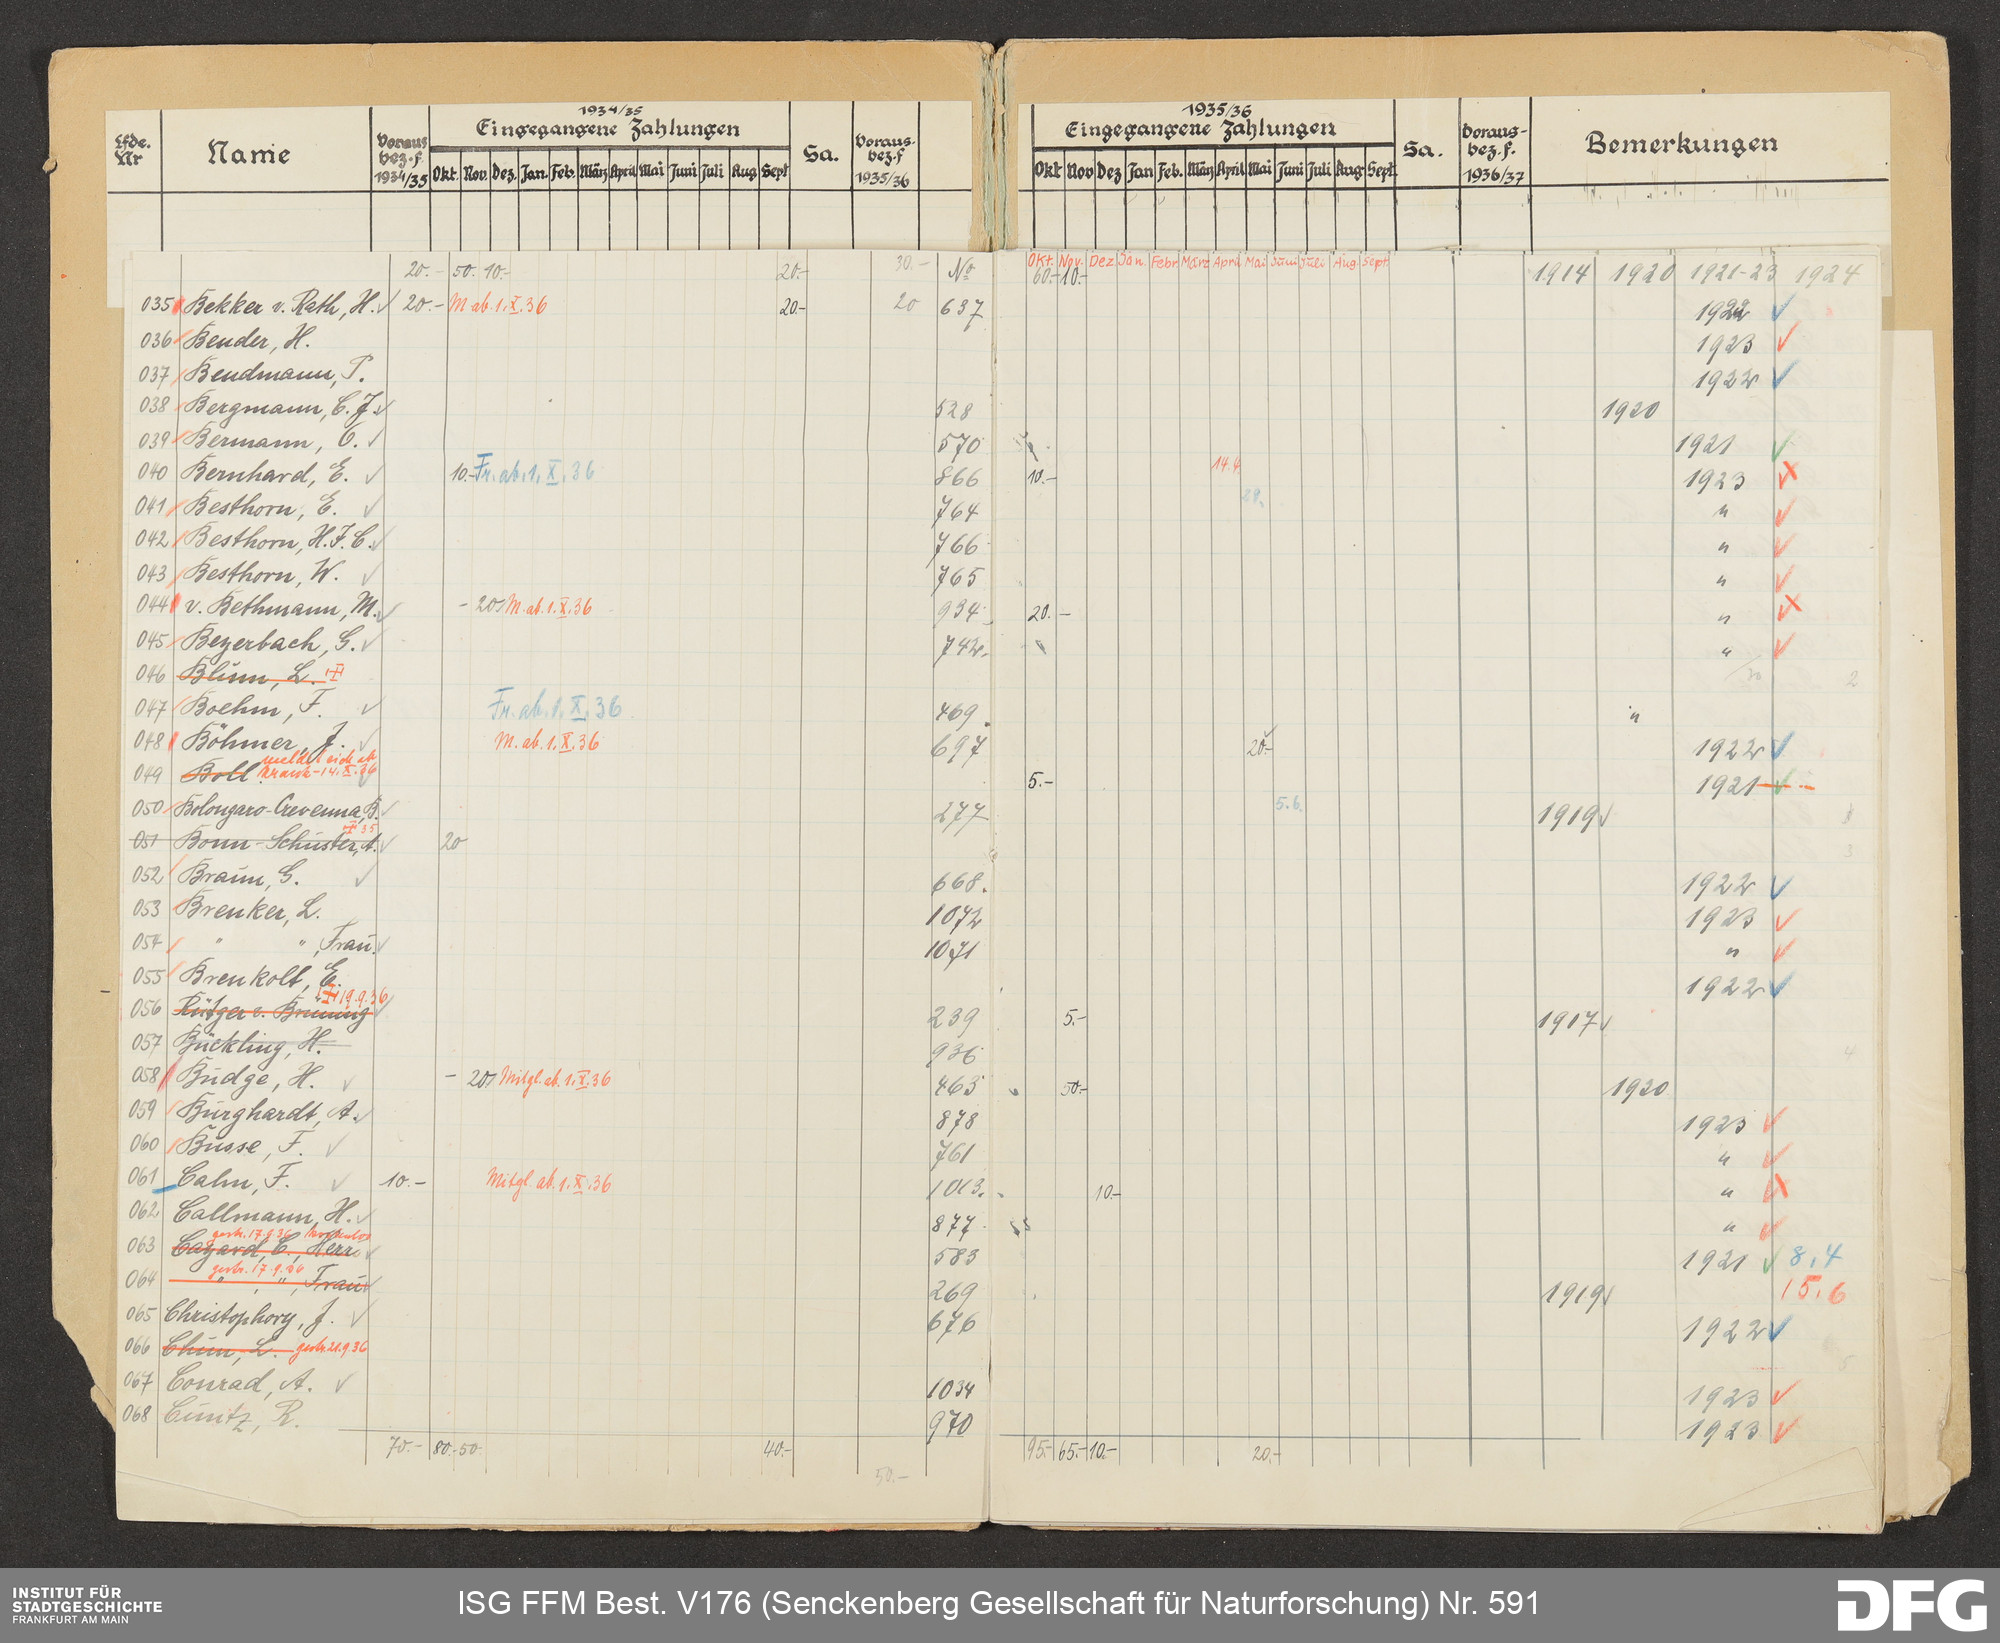 1934/35
Lfde. Nr Name Voraus bez. f. 1934/35 Eingegangene Zahlungen Sa. Voraus- bez. f 1935/36
Okt. Nov. Dez. Jan. Feb. März April Mai Juni Juli Aug Sept
1935/36
Eingegangene Zahlungen Sa. Voraus- bez. f. 1936/37 Bemerkungen
Okt Nov Dez Jan Feb. März April Mai Juni Juli Aug Sept
Okt. Nov. Dez Jan. Febr März April Mai Juni Juli Aug Sept
20.- 50. 10.- 20.- 30.- No 60.- 10.- 1914 1920 1921-23 1924
035 Bekker v. Rath, H. 20.- M ab. 1.X.36 20.- 20 637 1922
036 Bender, H. 1923
037 Bendmann, P. 1922
038 Bergmann, C. J. 528 1920
039 Bermann, C. 570 1921
040 Bernhard, E. 10.- Fr. ab. 1.X.36 866 10.- 14.4 1923
041 Besthorn, E. 764 "
042 Besthorn, H. F. C. 766 "
043 Besthorn, W. 765 "
044 v. Bethmann, M. - 20 M. ab. 1.X.36 934 20.- "
045 Beyerbach, G. 742 "
046 Blum, L.
047 Boehm, F. Fr. ab. 1.X.36 469 "
048 Böhmer, J. M. ab. 1.X.36 697 20.- 1922
049 Boll meldet sich ab krank - 14.X.36 5.- 1921
050 Bolongaro-Crevenna, B. 277 5.6. 1919
051 Bonn-Schuster, A. 35 20
052 Braun, G. 668. 1922
053 Brenker, L. 1072 1923
054 " ", Frau 1071 "
055 Brenkolt, E. 1922
056 Rütger v. Brüning 19.9.36 239 5.- 1917
057 Bückling, H. 936
058 Budge, H. - 20 Mitgl. ab. 1.X.36 463 50.- 1920
059 Burghardt, A. 878 1923
060 Busse, F. 761 "
061 Cahn, F. 10.- Mitgl. ab. 1.X.36 1013. 10.- "
062 Callmann, H. 877 "
063 Cazard, C., Herr gestr. 17.9.36 583 1921 8.4
064 " ", Frau gestr. 17.9.36 269 1919 15.6
065 Christophory, J. 676 1922
066 Chun, L. gestr. 21.9.36
067 Conrad, A. 1034 1923
068 Cunitz, R. 970 1923
70.- 80.- 50. 40.- 95.- 65.- 10.- 20.-
50.-
INSTITUT FÜR
STADTGESCHICHTE
FRANKFURT AM MAIN
ISG FFM Best. V176 (Senckenberg Gesellschaft für Naturforschung) Nr. 591
DFG